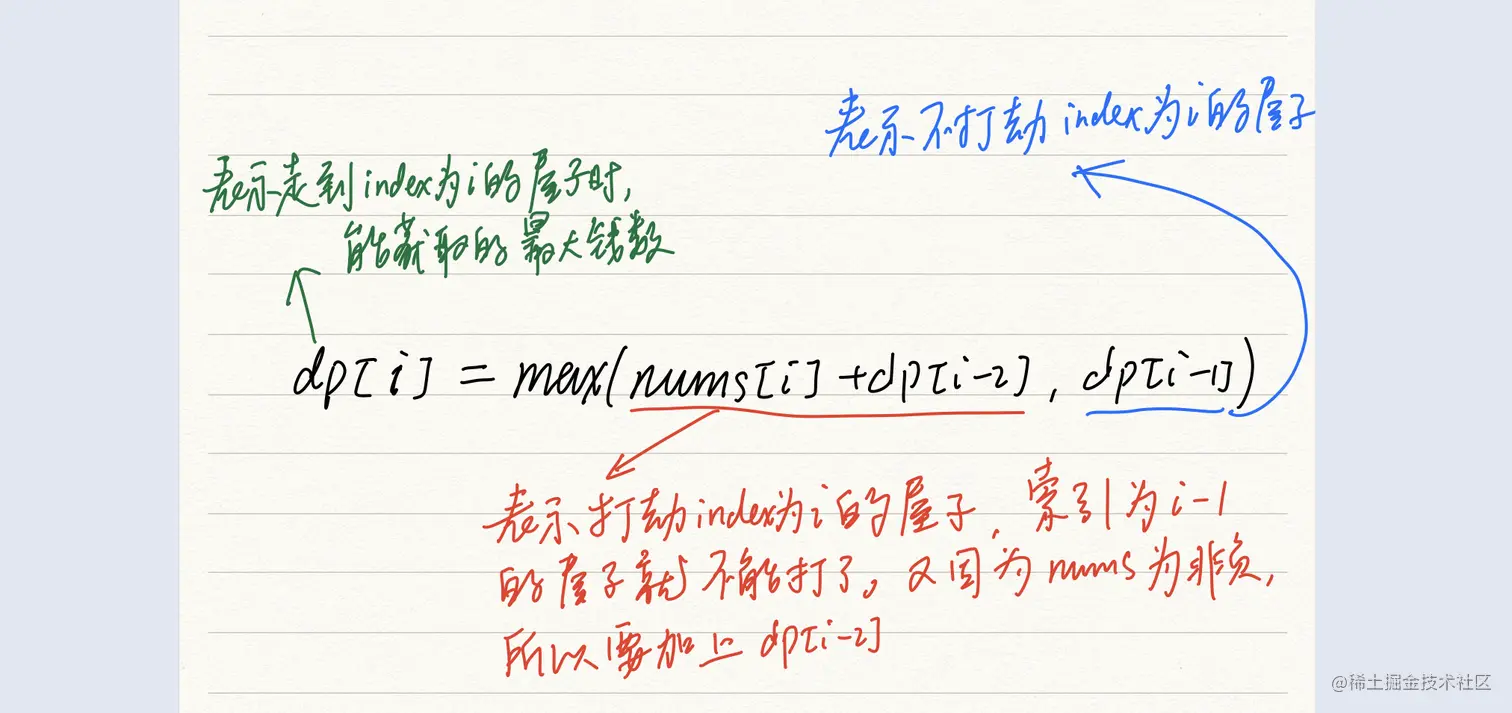 表示不打劫index为i的屋子
表示走到index为i的屋子时,
能获取的最大钱数
dp[i] = max(nums[i]+dp[i-2], dp[i-1])
表示打劫index为i的屋子, 索引为i-1
的屋子就不能打了。又因为nums为非负,
所以要加上dp[i-2]
@稀土掘金技术社区